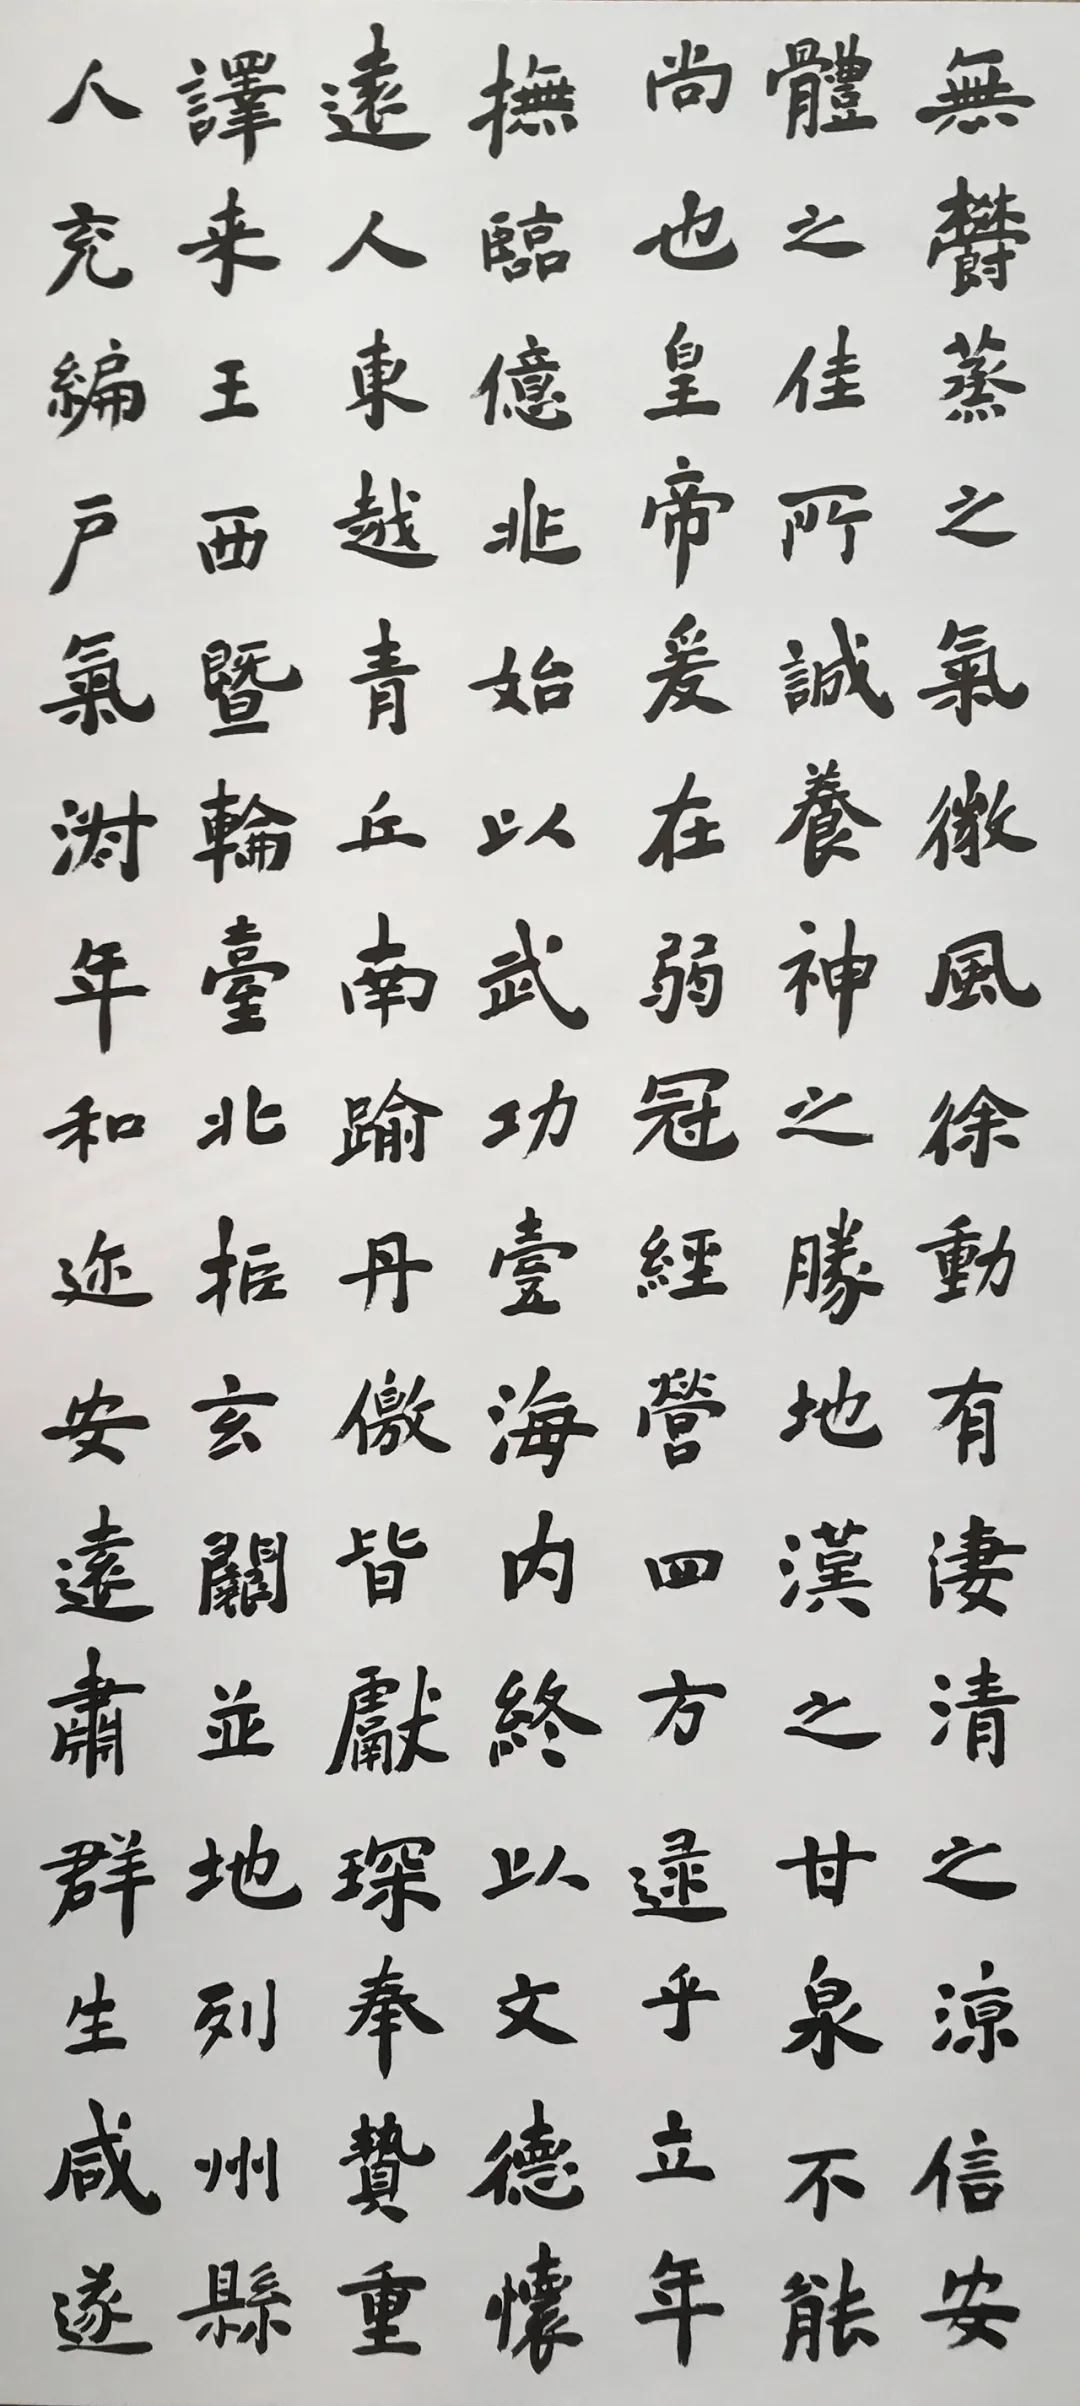 無欝蒸之氣微風徐動有淒清之涼信安
體之佳所誠養神之勝地漢之甘泉不能
尚也皇帝爰在弱冠經營四方逮乎立年
撫臨億兆始以武功壹海内終以文德懷
遠人東越青丘南踰丹儌皆獻琛奉贄重
譯来王西暨輪臺北拒玄闕並地列州縣
人充編戶氣淑年和迩安遠肅群生咸遂